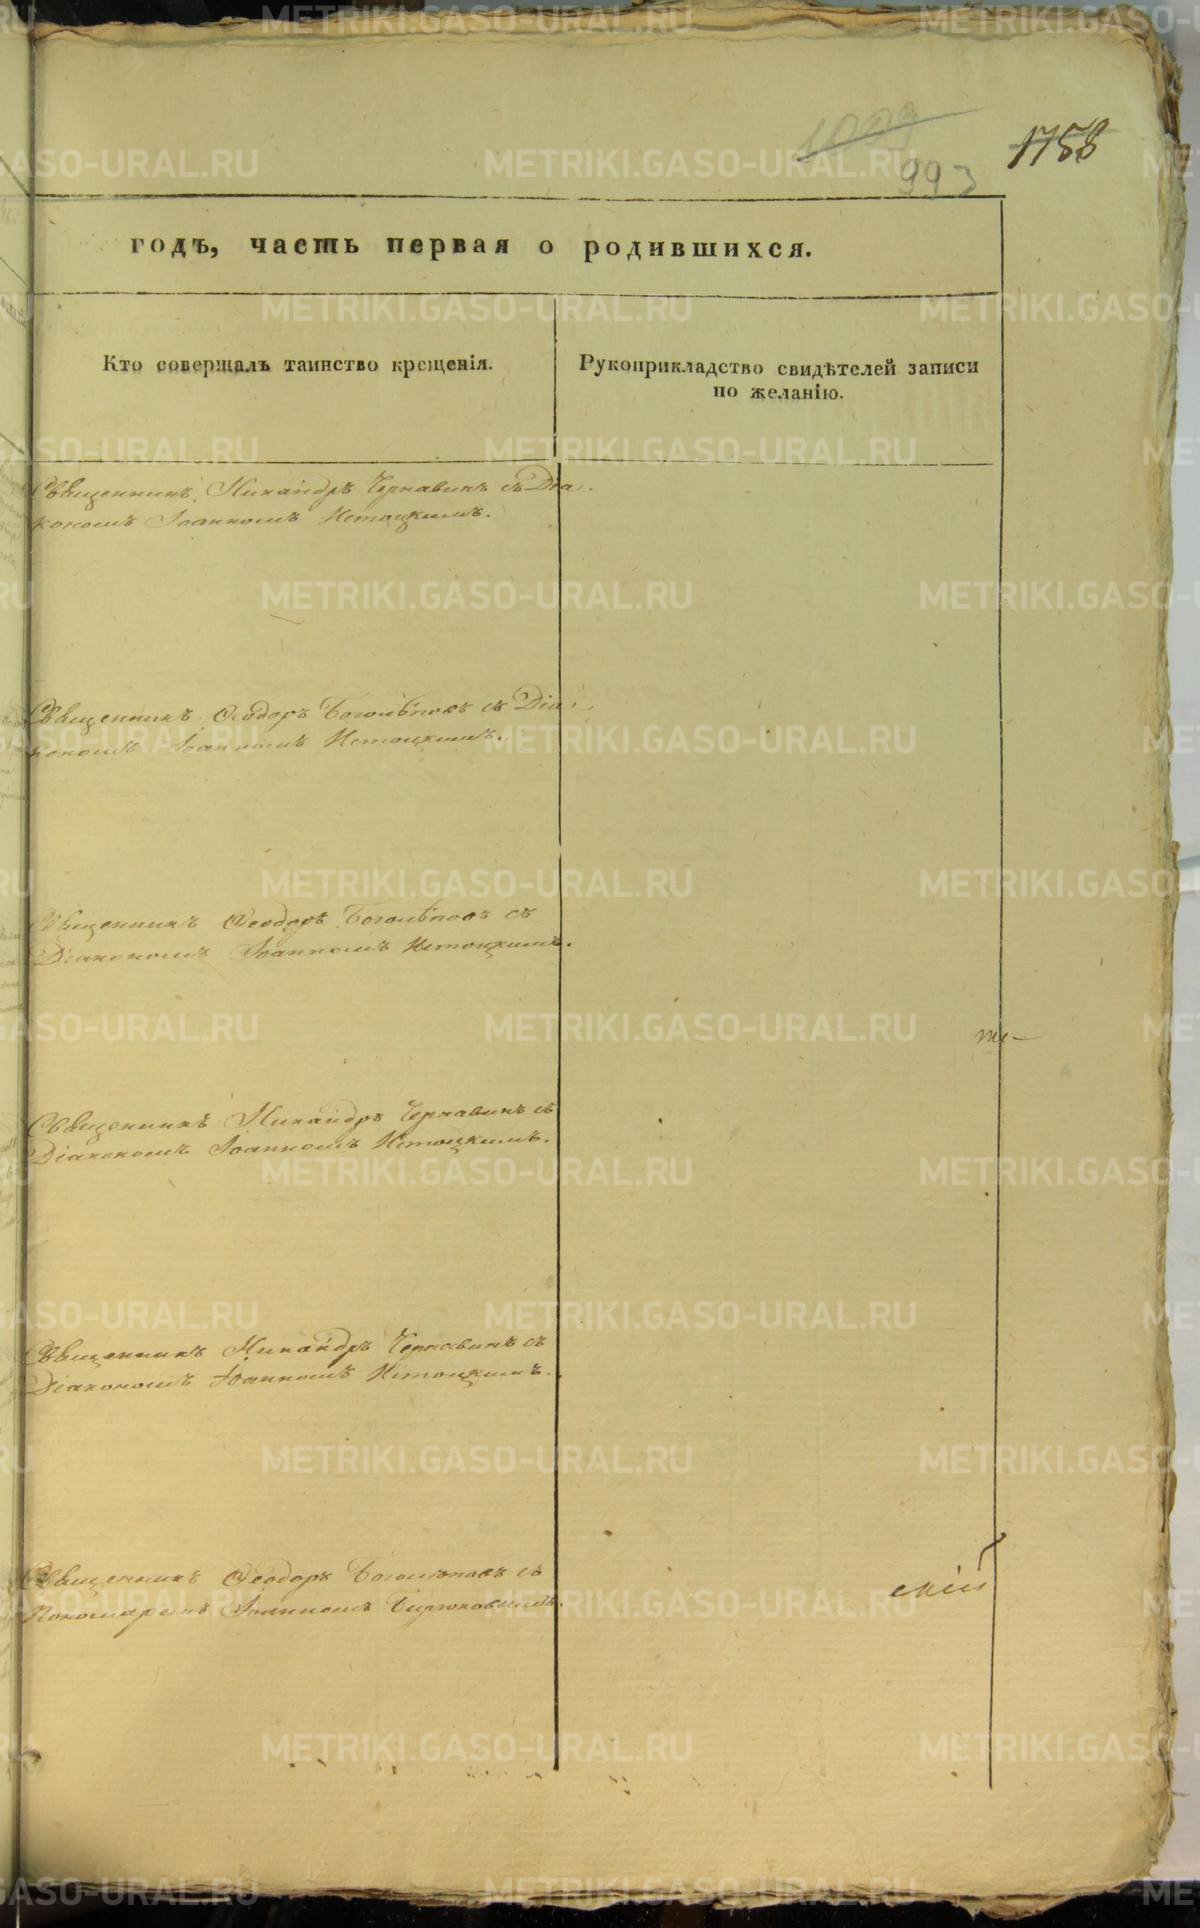 1009
993
1758
годъ, часть первая о родившихся.
Кто совершалъ таинство крещенія.
Рукоприкладство свидѣтелей записи
по желанію.
Священникъ Никандръ Чернавинъ съ Діа-
кономъ Іоанномъ Истоцкимъ.
Священникъ Ѳеодоръ Боголѣповъ съ Діа-
кономъ Іоанномъ Истоцкимъ.
Священникъ Ѳеодоръ Боголѣповъ съ
Діакономъ Іоанномъ Истоцкимъ.
Священникъ Никандръ Чернавинъ съ
Діакономъ Іоанномъ Истоцкимъ.
Священникъ Никандръ Чернавинъ съ
Діакономъ Іоанномъ Истоцкимъ.
Священникъ Ѳеодоръ Боголѣповъ съ
Пономаремъ Іоанномъ Бирюковымъ.
скій
METRIKI.GASO-URAL.RU